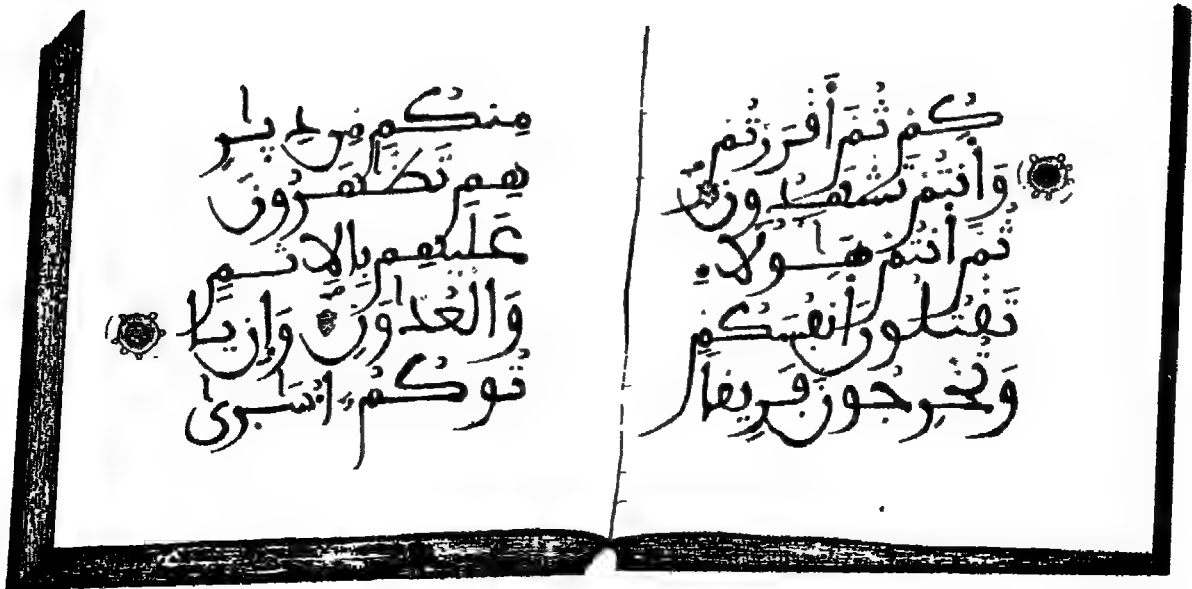 كُمْ ثُمَّ أَقْرَرْتُمْ
وَأَنْتُمْ تَشْهَدُونَ
ثُمَّ أَنْتُمْ هَٰؤُلَاءِ
تَقْتُلُونَ أَنْفُسَكُمْ
وَتُخْرِجُونَ فَرِيقًا
مِنْكُمْ مِنْ دِيَٰرِ
هِمْ تَظَّٰهَرُونَ
عَلَيْهِمْ بِالْإِثْمِ
وَالْعُدْوَٰنِ وَإِنْ يَا
تُوكُمْ أُسَٰرَىٰ